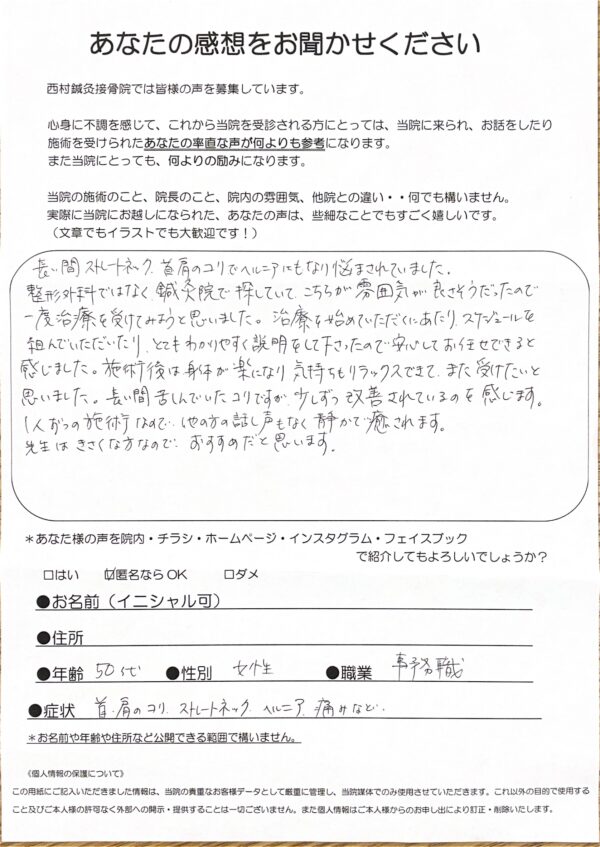 あなたの感想をお聞かせください
西村鍼灸接骨院では皆様の声を募集しています。
心身に不調を感じて、これから当院を受診される方にとっては、当院に来られ、お話をしたり
施術を受けられたあなたの率直な声が何よりも参考になります。
また当院にとっても、何よりの励みになります。
当院の施術のこと、院長のこと、院内の雰囲気、他院との違い・・何でも構いません。
実際に当院にお越しになられた、あなたの声は、些細なことでもすごく嬉しいです。
（文章でもイラストでも大歓迎です！）
長い間ストレートネック、首肩のコリでヘルニアにもなり悩まされていました。
整形外科ではなく鍼灸院で探していて、こちらが雰囲気が良さそうだったので
一度治療を受けてみようと思いました。治療を始めていただくにあたり、スケジュールを
組んでいただいたり、とてもわかりやすく説明をして下さったので安心してお任せできると
感じました。施術後は身体が楽になり気持ちもリラックスできて、また受けたいと
思いました。長い間苦しんでいたコリですが、少しずつ改善されているのを感じます。
1人ずつの施術なので、他の方の話し声もなく静かで癒されます。
先生はきさくな方なので、おすすめだと思います。
＊あなた様の声を院内・チラシ・ホームページ・インスタグラム・フェイスブック
で紹介してもよろしいでしょうか？
□はい ☑匿名ならOK □ダメ
●お名前（イニシャル可）
●住所
●年齢 50代 ●性別 女性 ●職業 事務職
●症状 首・肩のコリ、ストレートネック、ヘルニア、痛みなど、
＊お名前や年齢や住所など公開できる範囲で構いません。
《個人情報の保護について》
この用紙にご記入いただきました情報は、当院の貴重なお客様データとして厳重に管理し、当院媒体でのみ使用させていただきます。これ以外の目的で使用する
こと及びご本人様の許可なく外部への開示・提供することは一切ございません。また個人情報はご本人様からのお申し出により訂正・削除いたします。